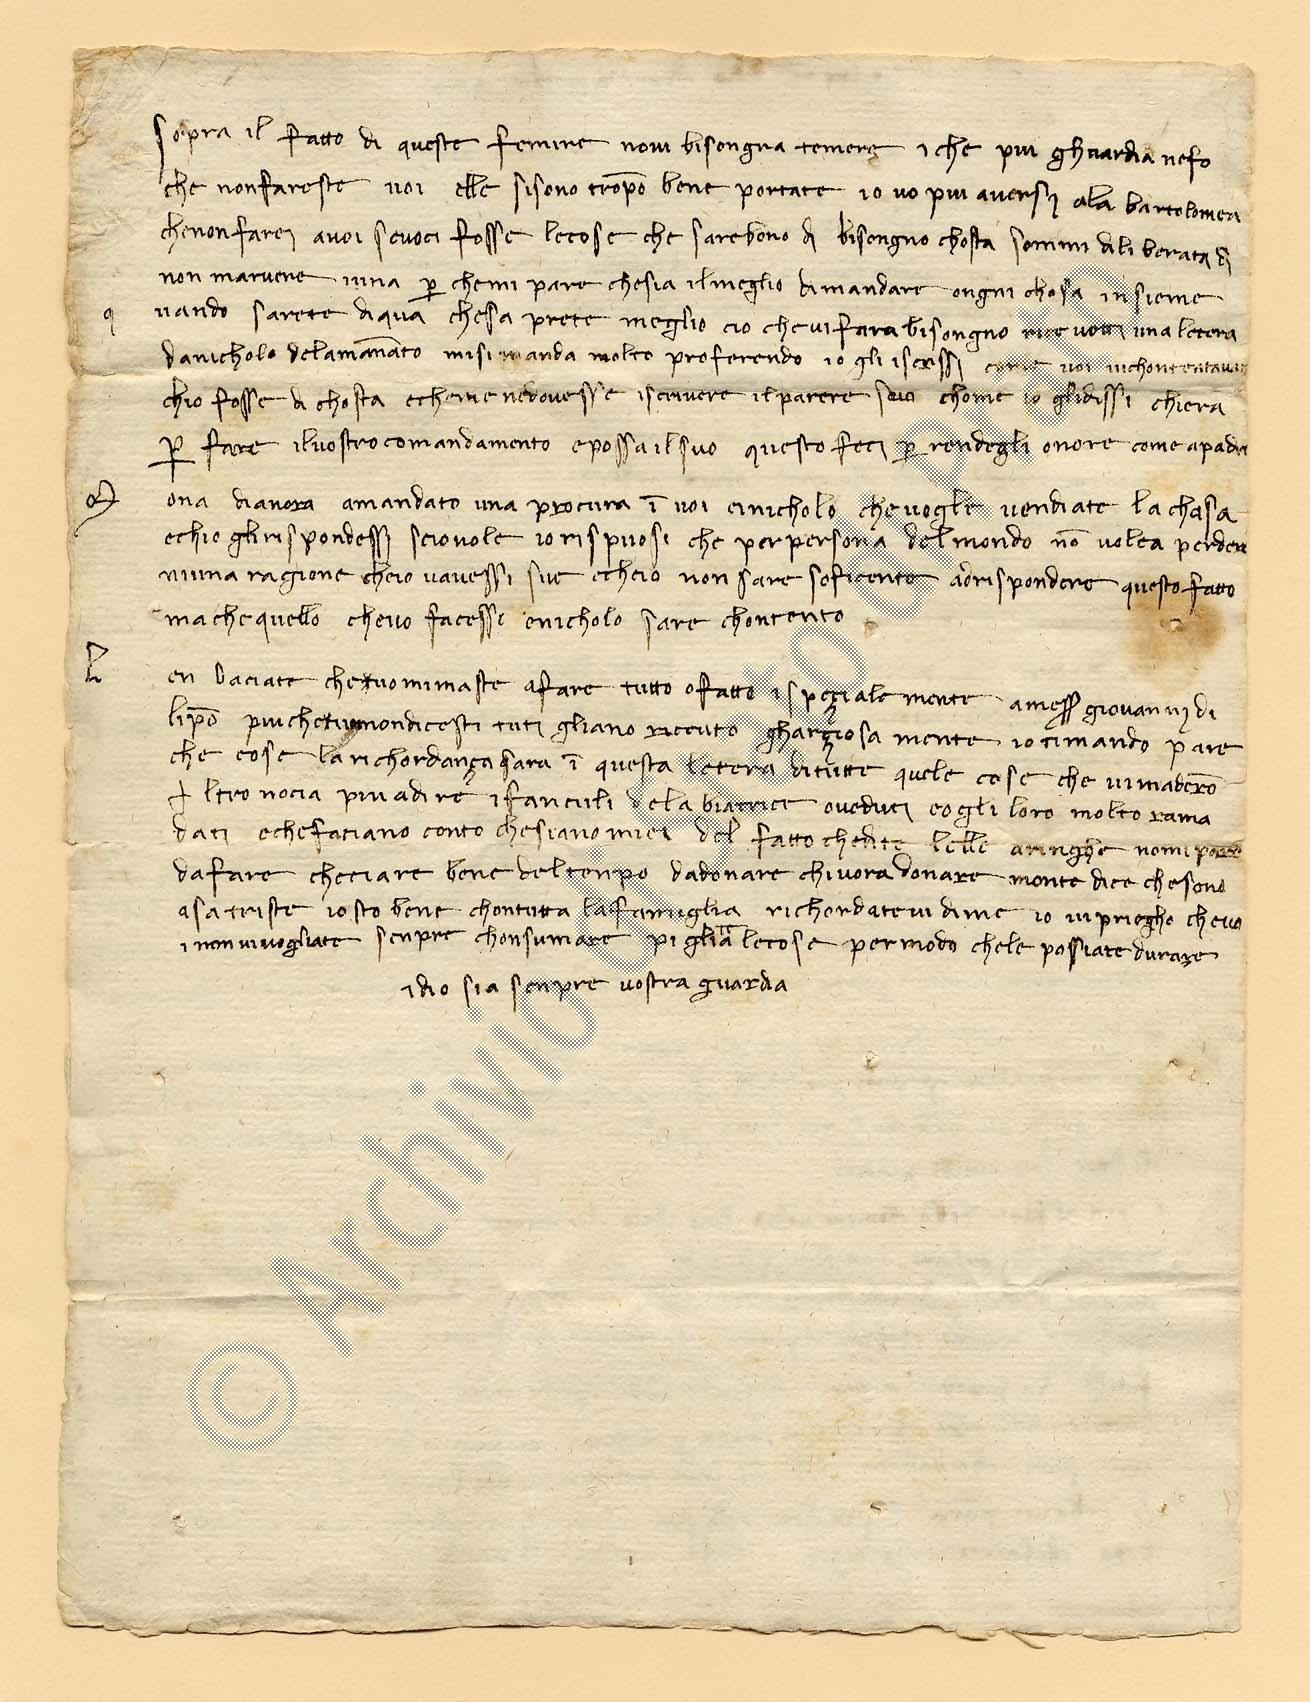 sopra il fatto di queste femine novi bisongna temere i che piu ghuardia nefo
che nonfareste voi elle sisono tropo bene portate io vo piu aversi ala bartolomea
chenonfarei avoi sevoci fosse lecose che sarebono di bisongno chosta sommi diliberata di
non marvere iuna per chemi pare chesia ilmeglio dimandare ongni chosa insieme
q vando sarete diqua chesa prete meglio cio chevifara bisongno ricevetti una letera
danicholo delamanato misimanda molto proferendo io gli iscrissi come voi
chio fosse di chosta echeme nedovesse iscrivere ilparere suo chome io glidissi chiera
per fare ilvostro comandamento epossa il suo questo feci per rendegli onore come apadre
M ona dianora amandato una procura i voi einicholo chevogle vendiate lachasa
echio glirispondessi sciovole iorispuosi che perpersona delmondo no volea perdere
niuna ragione cheio vavessi sue echeio non sare soficente arispondere questo fatto
ma chequello chevo facesse enicholo sare chontento
L en daciate che vominaste afare tutto ofatto ispezialemente amess giovanni di
lipo piu che mondicesti tuti gliano riceuto gharziosa mente iotimando pare
che cose larichordanza sara i questa letera ditutte quele cose che vimadero
A ltro nocia piu adire ifanculi dela biatrice oveduti eogli loro molto rama
dati echefaciano conto chesiano miei del fatto chedite lelle aringhe nomi pare
dafare checiare bene deltenpo dadonare chivora donare monte dice chesono
asatriste iosto bene chontutta lafamiglia richordatevi dime io vipriegho chevo
i nonvivogliate senpre chonsumare pigliate lecose permodo chele possiate durare
idio sia senpre vostra guardia
© Archivio di Stato di Prato